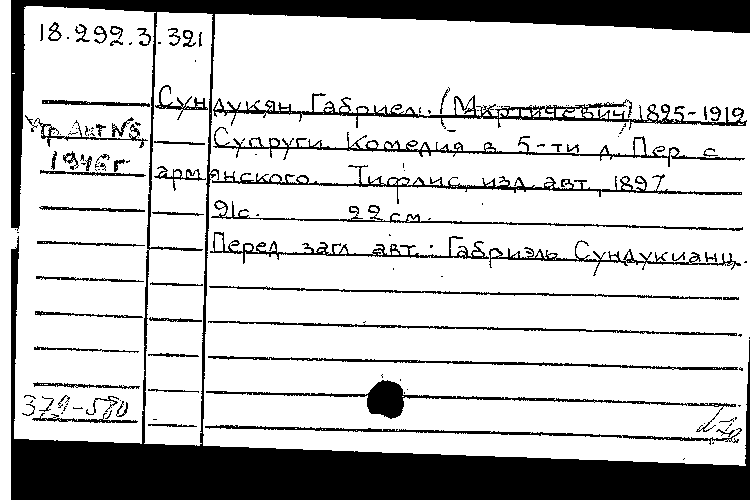 18.292.3.321
Сундукян, Габриел. (Мкртичевич) 1825-1912
Утр. Акт №3,
1946 г
Супруги. Комедия в 5-ти д. Пер. с
армянского. Тифлис, изд. авт., 1897.
91с. 22 см.
Перед загл. авт.: Габриэль Сундукианц.
379-580